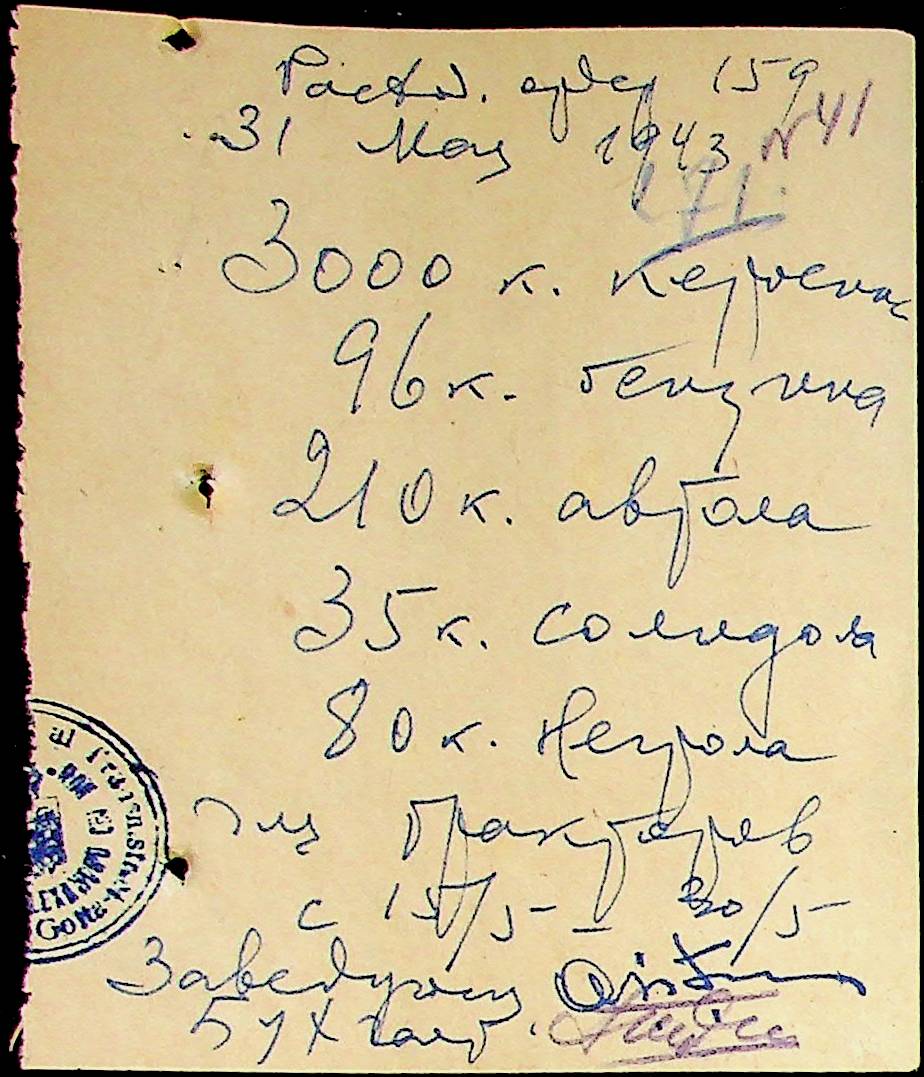 Расход. ордер 159
31 Мая 1943 №41
271.
3000 к. керосина
96 к. бензина
210 к. автола
35 к. солидола
80 к. Негрола
для Тракторов
с 15/5 – 30/5
Заведующ
Бухгалт.